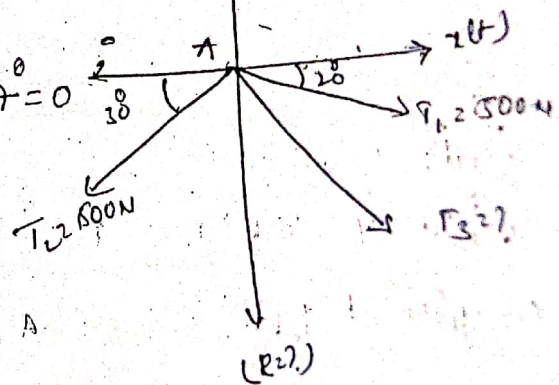 A
x(+)
θ = 0
30°
20°
T₁ = 500N
T₂ = 500N
T₃ = ?
A
(R = ?)